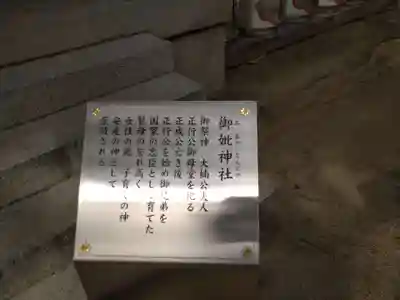 御妣神社
御祭神 大楠公夫人
正行公御母堂を祀る
正成公亡き後
正行公を始め御兄弟を
国家の忠臣として育てた
賢母の誉れ高く
女性の鑑、子育ての神
安産の神として
崇敬される